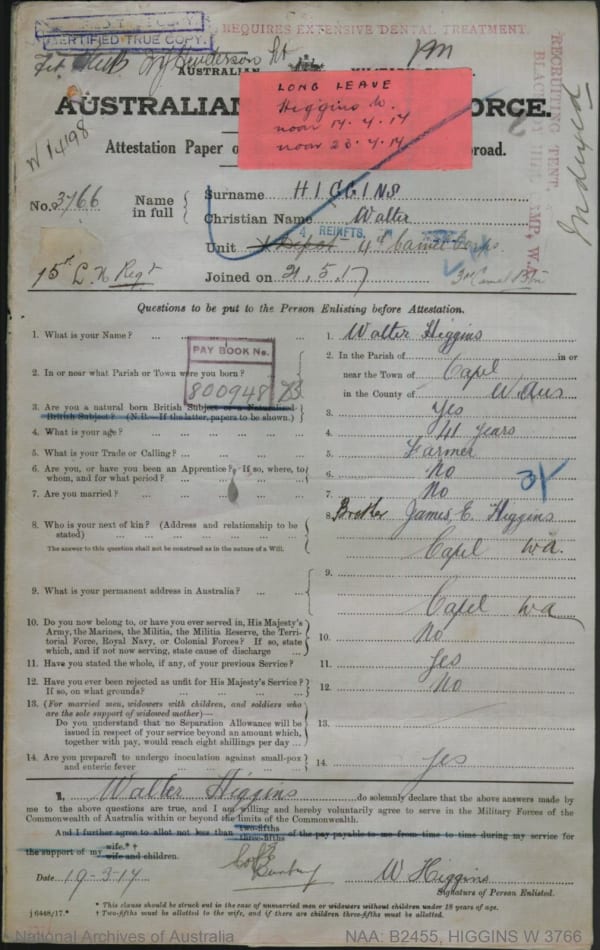 REQUIRES EXTENSIVE DENTAL TREATMENT.
CERTIFIED TRUE COPY.
AUSTRALIAN
AUSTRALIAN
ORCE.
LONG LEAVE
Higgins W.
noon 14.4.17
noon 23.4.17
Attestation Paper o
broad.
RECRUITING TENT,
Indexed
W 14198
No. 3766
Name in full
Surname HIGGINS
Christian Name Walter
4. REINFTS.
Unit Depot 4th Camel Corps.
15th L H Regt
Joined on 21.5.17
3rd Camel Btn
Questions to be put to the Person Enlisting before Attestation.
1. What is your Name? ... ...
1. Walter Higgins
PAY BOOK No.
800948
2. In or near what Parish or Town were you born?
2. In the Parish of in or
near the Town of Capel
in the County of W Aus
3. Are you a natural born British Subject or a Naturalized
British Subject? (N.B.—If the latter, papers to be shown.)
3. Yes
4. What is your age?
4. 41 years
5. What is your Trade or Calling?
5. Farmer
6. Are you, or have you been an Apprentice? If so, where, to
whom, and for what period?
6. No
7. Are you married?
7. No
8. Who is your next of kin? (Address and relationship to be
stated)
The answer to this question shall not be construed as in the nature of a Will.
8. Brother James E. Higgins
Capel W.A.
9. What is your permanent address in Australia?
9.
Capel W A
10. Do you now belong to, or have you ever served in, His Majesty's
Army, the Marines, the Militia, the Militia Reserve, the Terri-
torial Force, Royal Navy, or Colonial Forces? If so, state
which, and if not now serving, state cause of discharge
10. No
11. Have you stated the whole, if any, of your previous Service?
11. Yes
12. Have you ever been rejected as unfit for His Majesty's Service?
If so, on what grounds?
12. No
13. (For married men, widowers with children, and soldiers who
are the sole support of widowed mother)—
Do you understand that no Separation Allowance will be
issued in respect of your service beyond an amount which,
together with pay, would reach eight shillings per day
13.
14. Are you prepared to undergo inoculation against small-pox
and enteric fever
14. Yes
I, Walter Higgins do solemnly declare that the above answers made by
me to the above questions are true, and I am willing and hereby voluntarily agree to serve in the Military Forces of the
Commonwealth of Australia within or beyond the limits of the Commonwealth.
And I further agree to allot not less than two-fifths three-fifths of the pay payable to me from time to time during my service for
the support of my wife.* †
wife and children.
Date 19-3-17
Bunbury
W Higgins
Signature of Person Enlisted.
* This clause should be struck out in the case of unmarried men or widowers without children under 18 years of age.
† Two-fifths must be allotted to the wife, and if there are children three-fifths must be allotted.
j 6448/17.*
National Archives of Australia
NAA: B2455, HIGGINS W 3766